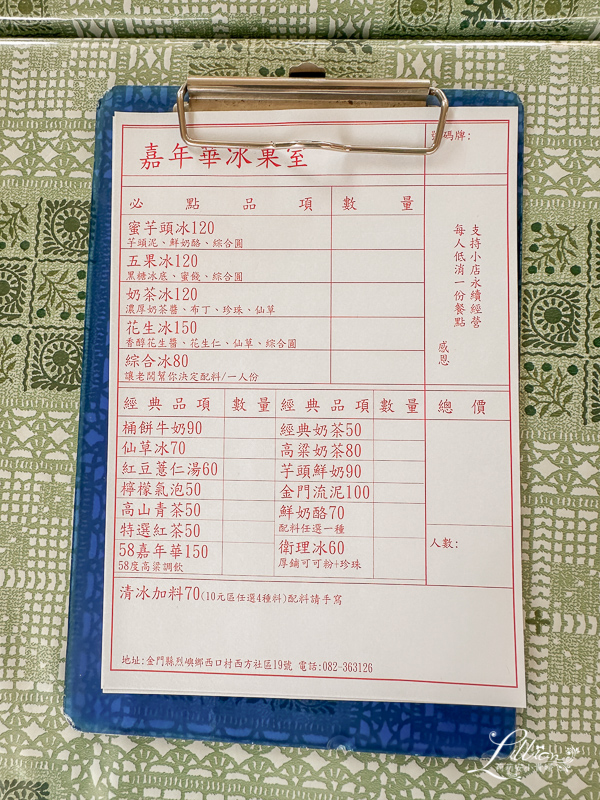 嘉年華冰果室
號碼牌:
必點品項 數量
蜜芋頭冰120
芋頭泥、鮮奶酪、綜合圓
五果冰120
黑糖冰底、蜜餞、綜合圓
奶茶冰120
濃厚奶茶醬、布丁、珍珠、仙草
花生冰150
香醇花生醬、花生仁、仙草、綜合圓
綜合冰80
讓老闆幫你決定配料/一人份
支持小店永續經營
每人低消一份餐點
感恩
經典品項 數量 經典品項 數量 總價
桶餅牛奶90 經典奶茶50
仙草冰70 高粱奶茶80
紅豆薏仁湯60 芋頭鮮奶90
檸檬氣泡50 金門流泥100
高山青茶50 鮮奶酪70
配料任選一種
特選紅茶50
58嘉年華150 衛理冰60
58度高粱調飲 厚鋪可可粉+珍珠
人數:
清冰加料70(10元區任選4種料)配料請手寫
地址:金門縣烈嶼鄉西口村西方社區19號 電話:082-363126
Lillian